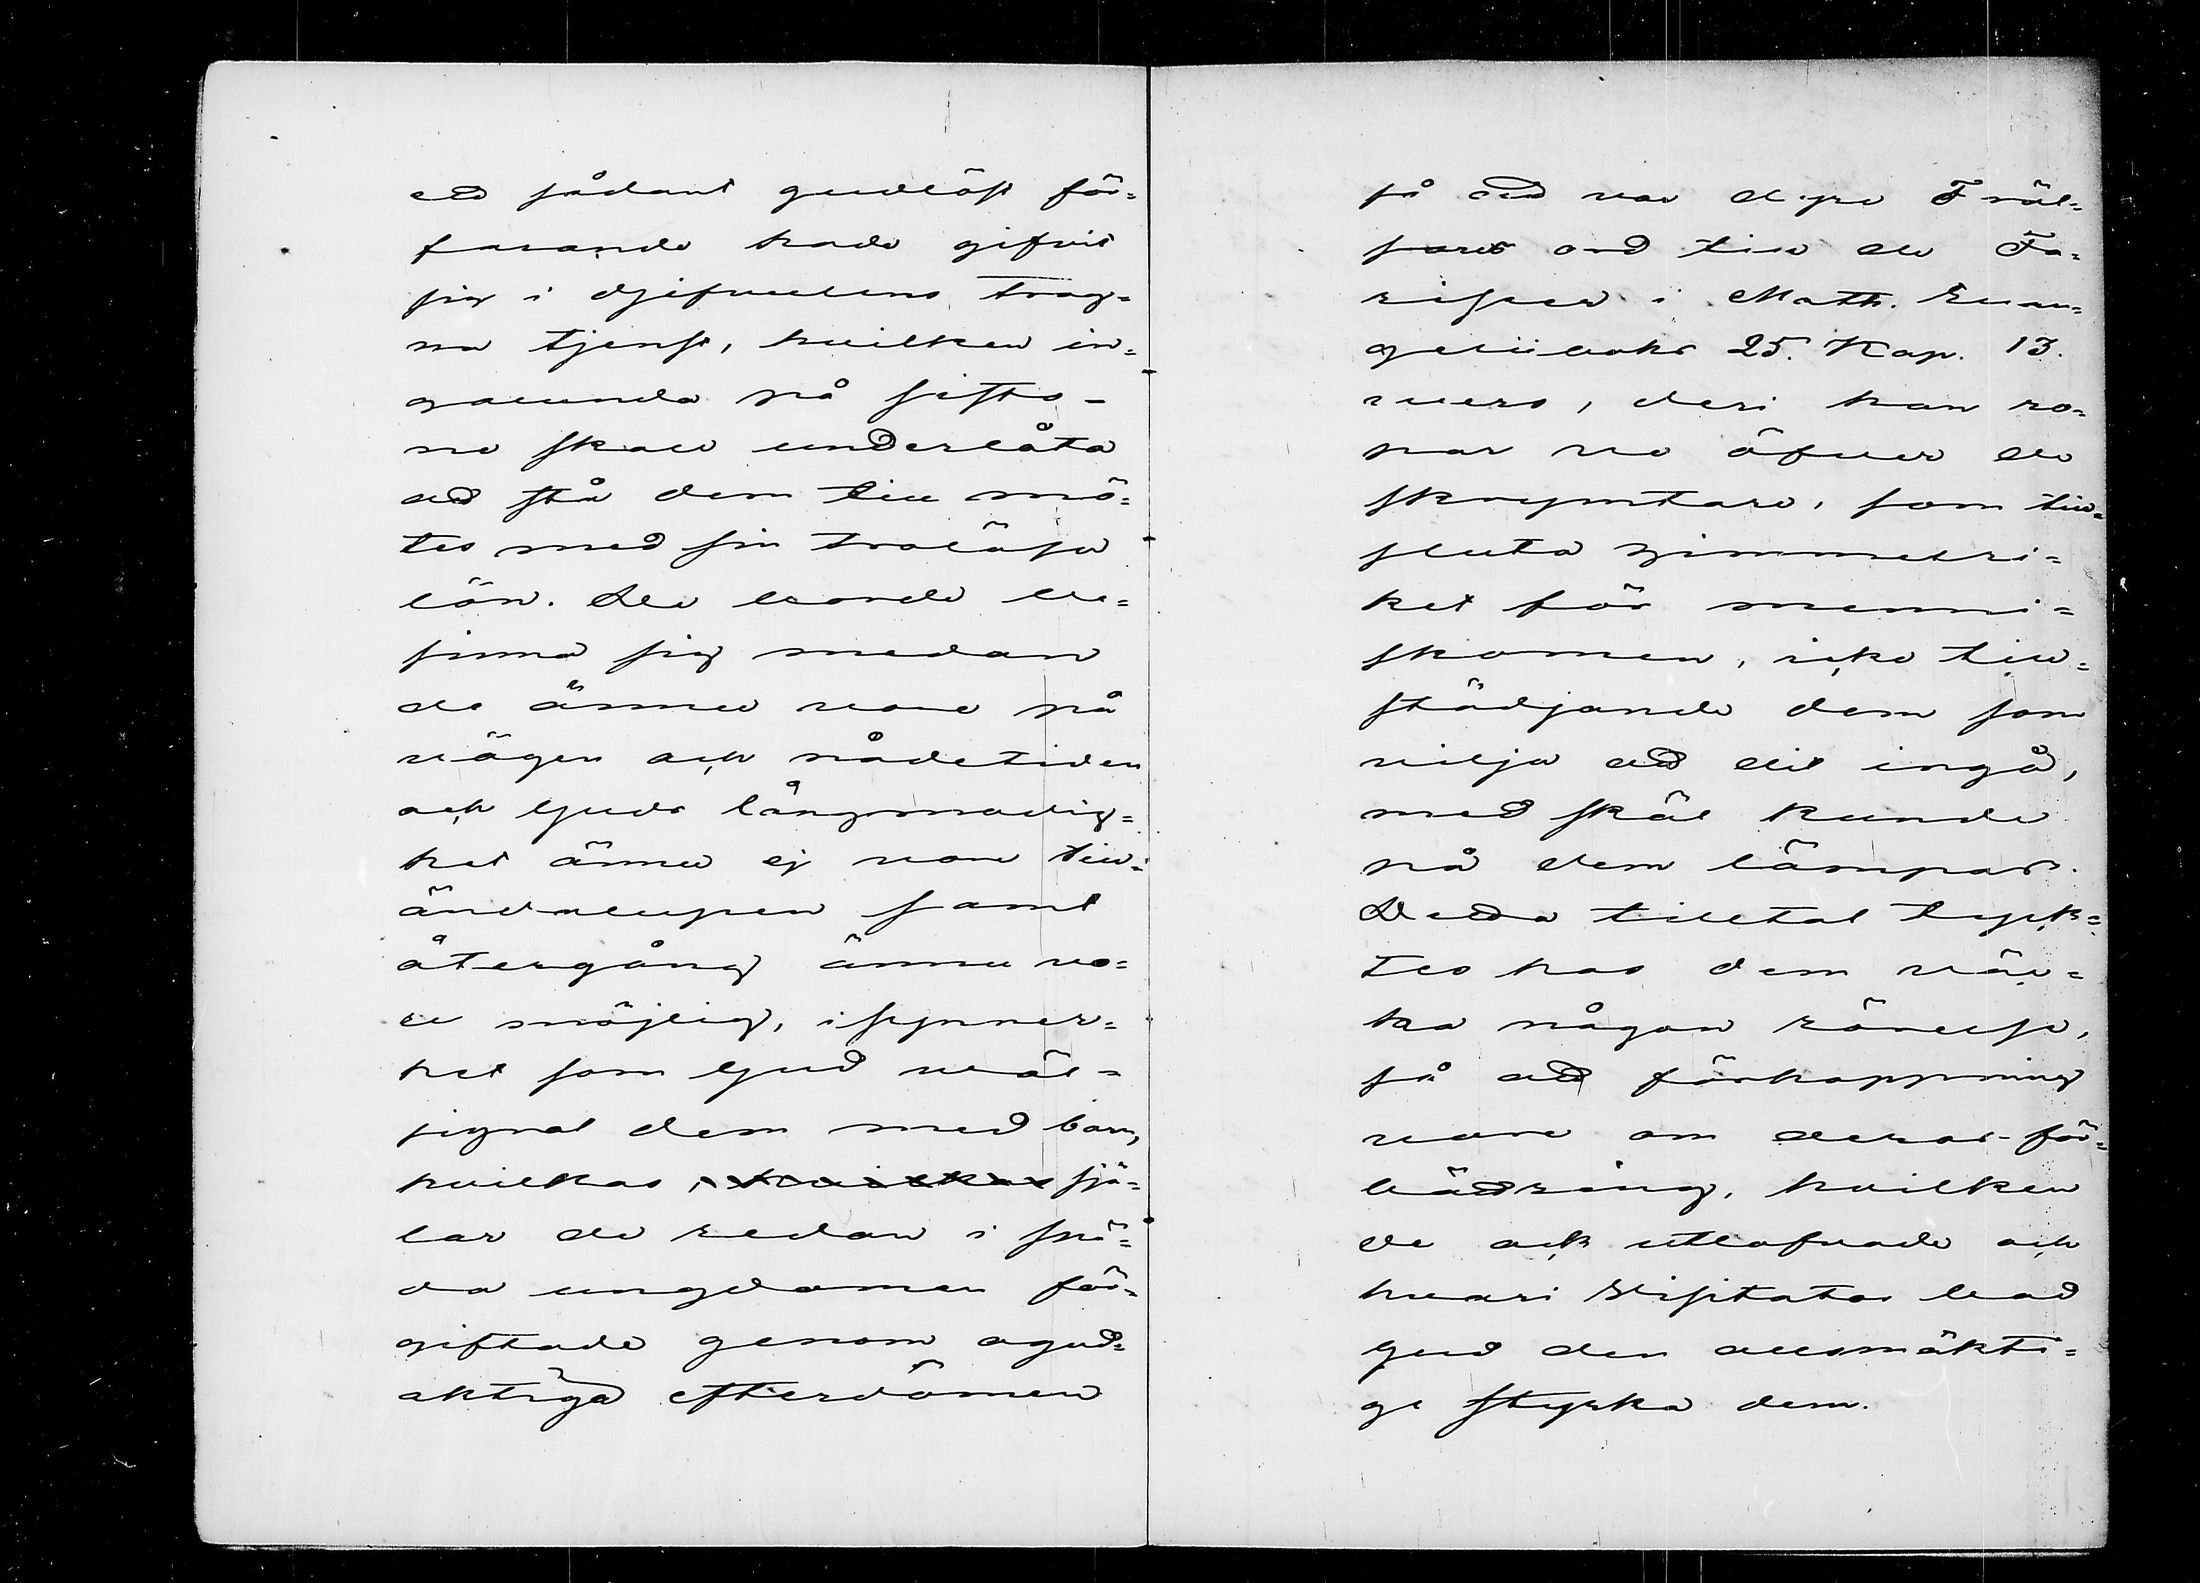 ett sådant gudlöst för=
farande hade gifvit
sig i djefvulens trog=
na tjenst, hvilken in=
galunda på sisto-
ne skall underlåta
att stå dem till mö=
tes med sin trolösa
lön. De borde be=
sinna sig medan
de ännu voro på
vägen och nådetiden
och Guds långmodig=
het ännu ej vore till=
ändalupen samt
återgång ännu vo=
re möjlig, isynner=
het som Gud väl=
signat dem med barn,
hvilkas sjä=
lar de redan i spä=
da ungdomen för=
giftade genom ogud=
aktiga efterdömen
så att var dyre Fräl=
sares ord till de Fa=
riseer i Math. Evan=
gelii boks 25. Kap. 13.
vers, deri han ro=
par ve öfver de
skrymtare, som till=
sluta himmelri=
ket för menni=
skomen, icke till=
städjande dem som
vilja att dit ingå,
med skäl kunde
på dem lämpas.
Detta tilltal tyck=
tes hos dem väc=
ka någon rörelse,
så att förhoppning
vore om deras för=
bättring, hvilken
de ock utlofvade och
hvari Visitator bad
Gud den allsmäkti=
ge styrka dem.